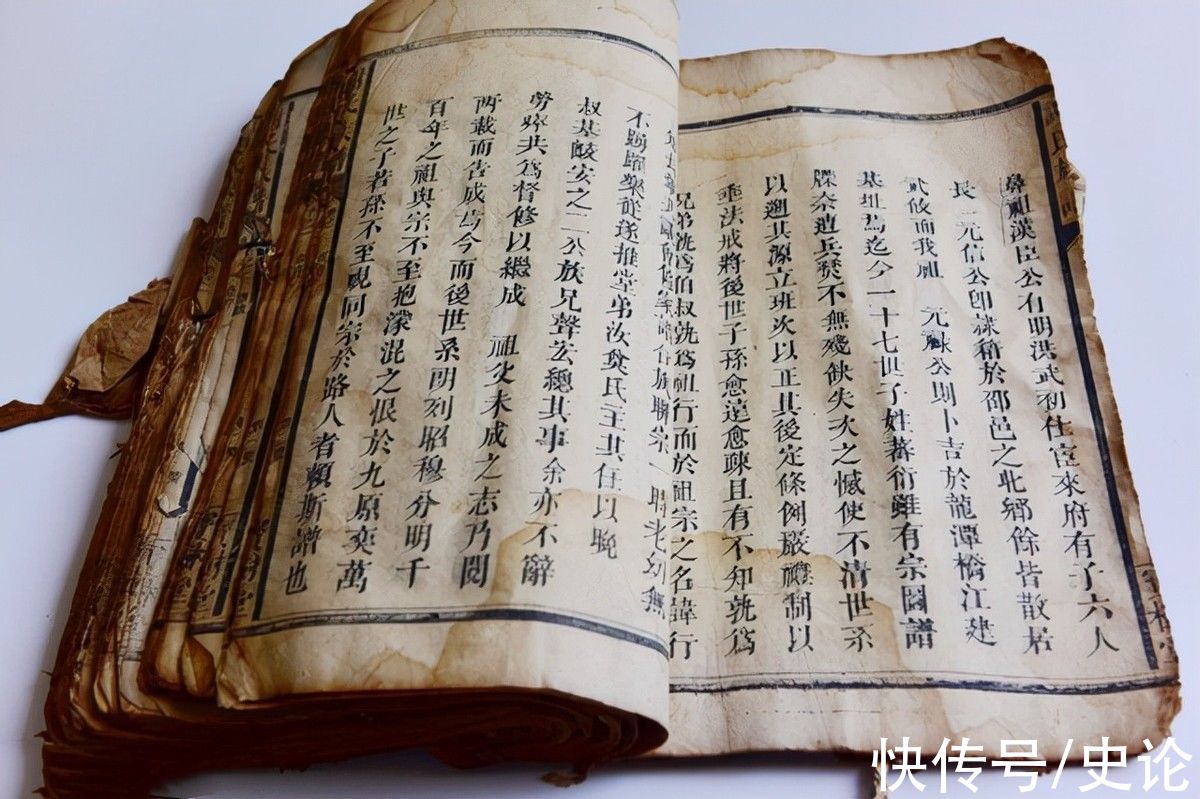 鼻祖漢臣公有明洪武初仕宦來府有子六人
長 元信公卽隸籍於邵邑之北鄉餘皆散居
貳攸而我祖 元公則卜吉於龍潭橋江建
基址焉迄今一十七世子姓蕃衍雖有宗圖譜
牒奈遭兵燹不無殘缺失次之憾使不清世系
以遡其源立班次以正其後定條例嚴禮制以
垂法戒將後世子孫愈達愈疎且有不知孰爲
兄弟孰爲伯叔孰爲祖行而於祖宗之名諱行
合族聯宗一時老幼無
不踴躍樂從遂推堂弟汝民主其任以晚
叔基安之二公族兄聲宏總其事余亦不辭
勞瘁共爲督修以繼成 祖父未成之志乃閱
兩載而告成焉今而後世系明刻昭穆分明千
百年之祖與宗不至抱濛混之恨於九原奕萬
世之子若孫不至視同宗於路人者賴斯譜也
快传号/史论